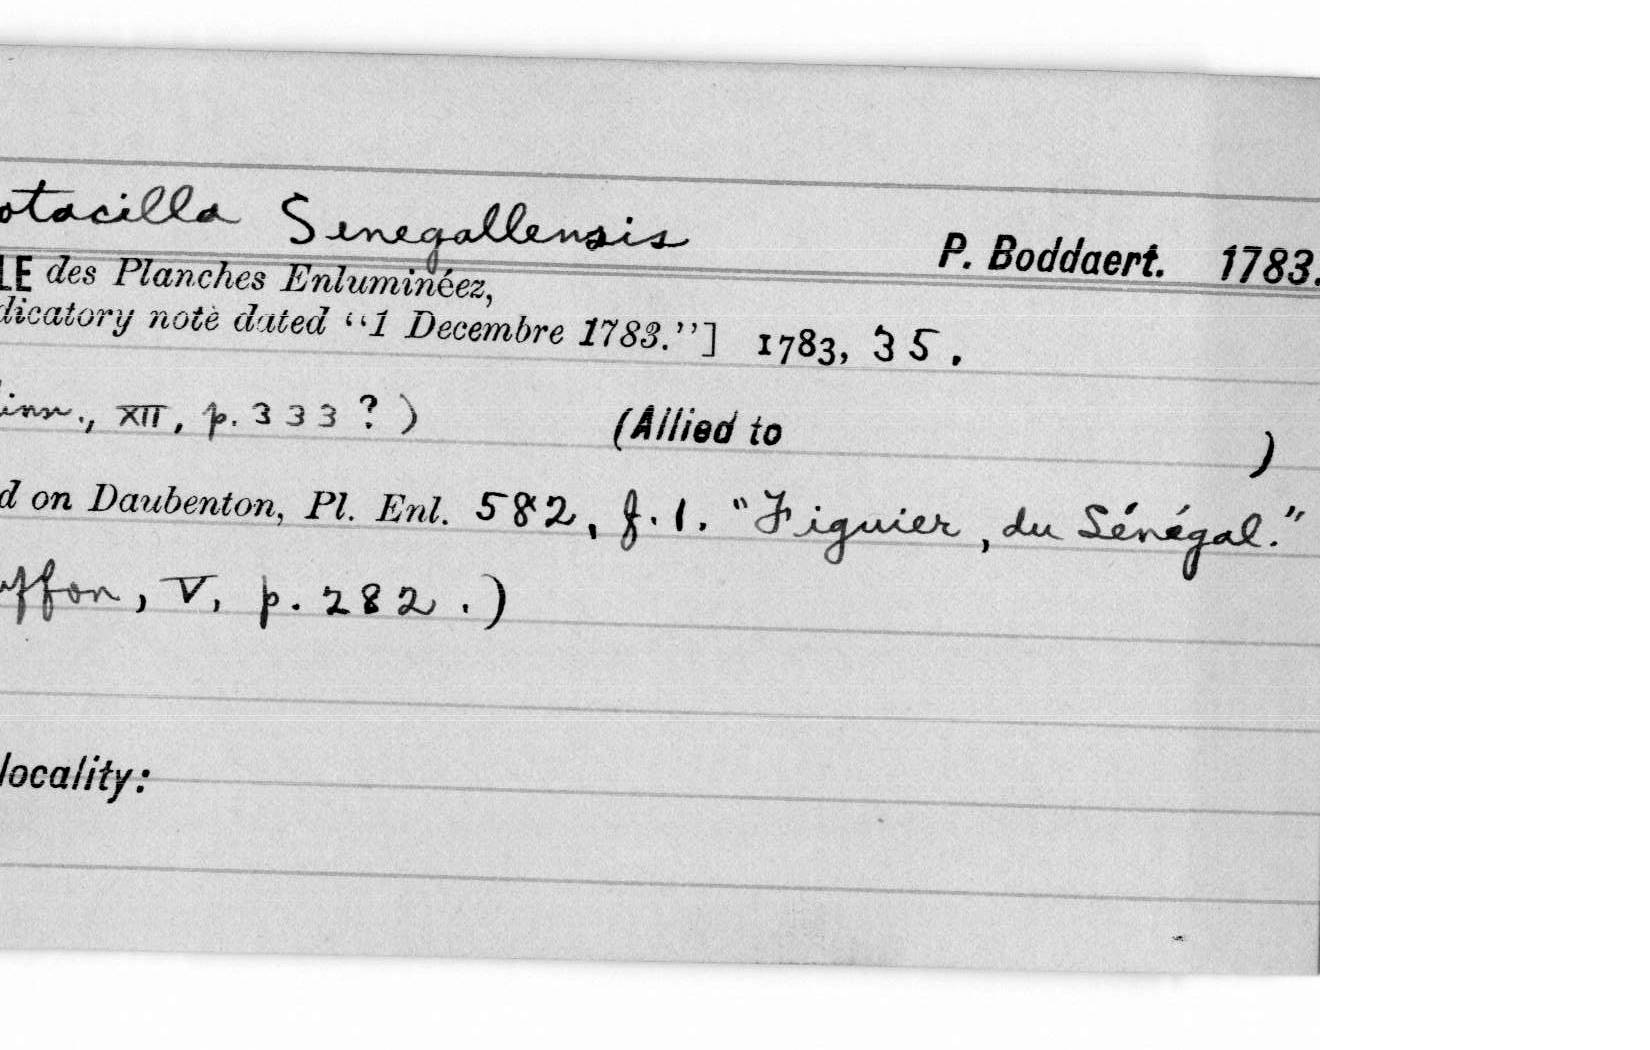 otacilla Senegallensis P. Boddaert. 1783.
LE des Planches Enluminéez,
dicatory note dated “1 Decembre 1783.”] 1783, 35.
inn., XII, p. 333?) (Allied to )
d on Daubenton, Pl. Enl. 582, f. 1. "Figuier, du Sénégal."
uffon, V, p. 282.)
locality: